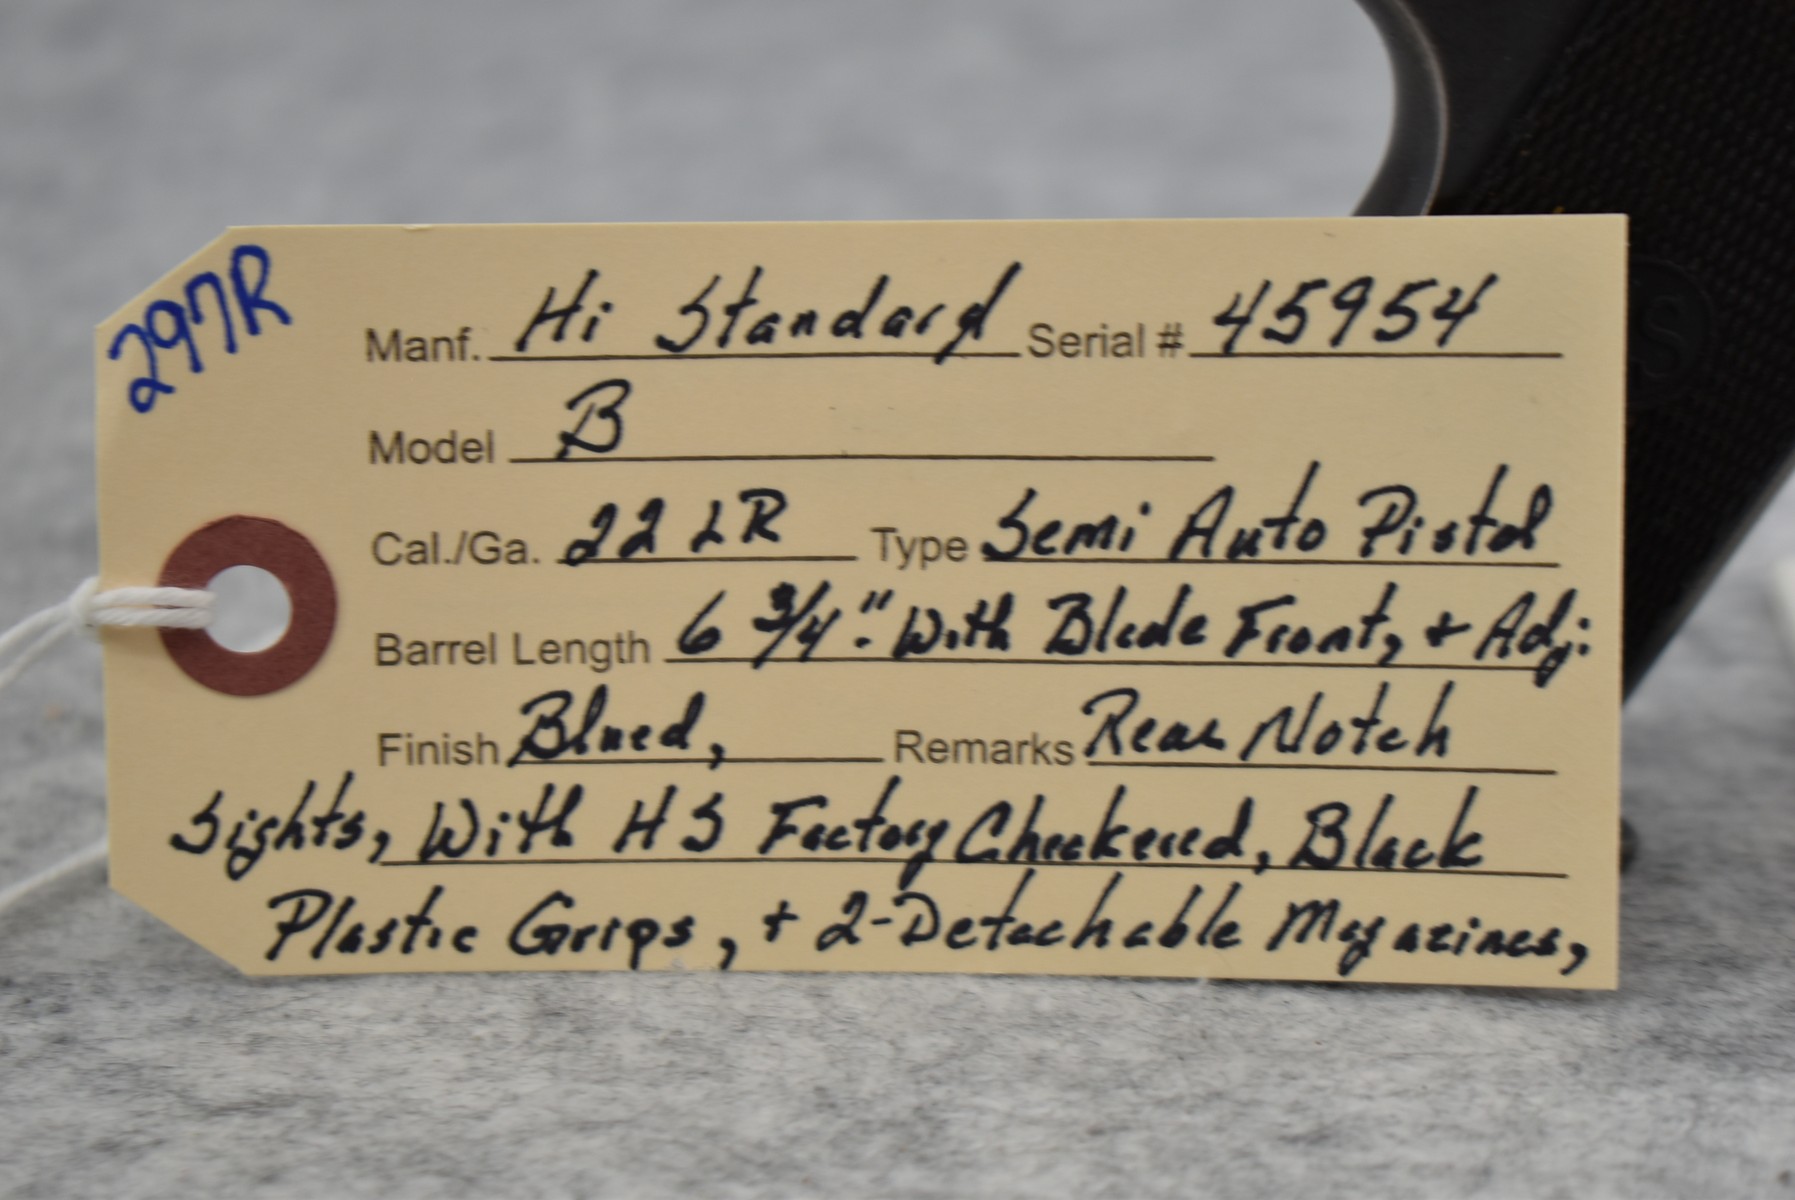 297R
Manf. Hi Standard Serial # 45954
Model B
Cal./Ga. 22 LR Type Semi Auto Pistol
Barrel Length 6 3/4". With Blade Front, + Adj.
Finish Blued, Remarks Rear Notch
Sights, With HS Factory Checkered, Black
Plastic Grips, + 2-Detachable Magazines,